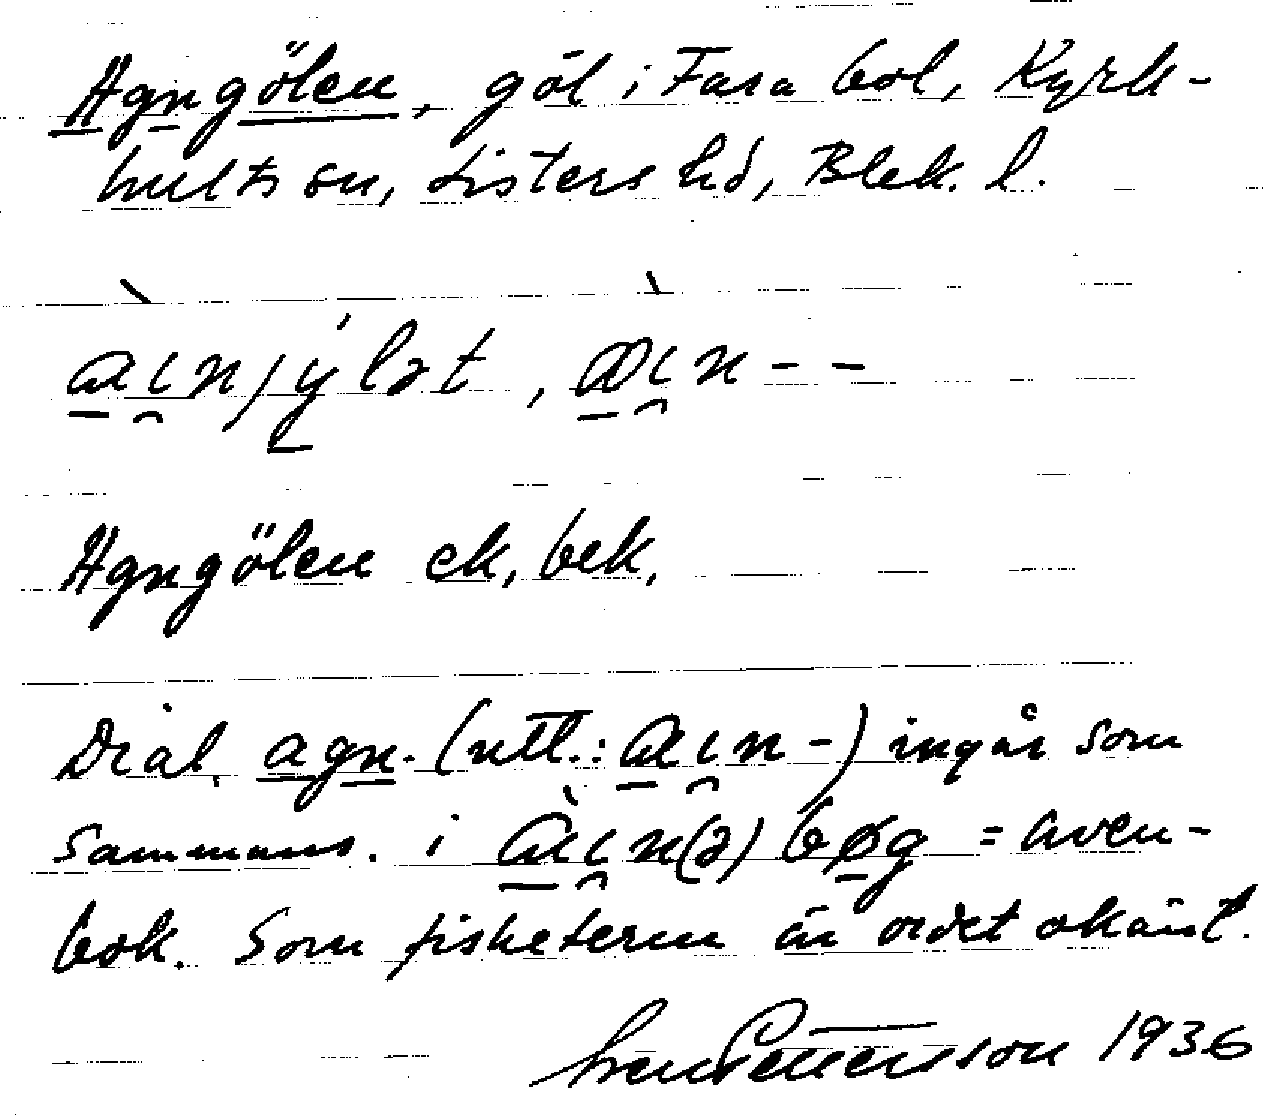 Agngölen, göl i Farabol, Kyrk-
hults sn, Listers hd, Blek. l.
Agngölen ek, bek.
Dial. agn- (utt.: a̱ι̯n -) ingår som
sammans. i à̱ι̯n(ə)bø̱g = aven-
bok. Som fisketerm är ordet okänt.
Sven Pettersson 1936